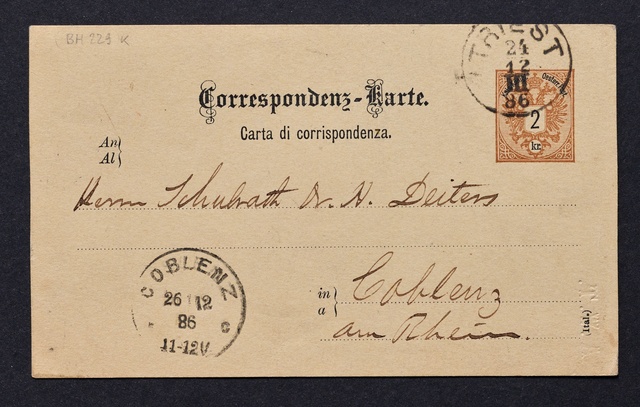 BH 229 K
TRIEST
24
12
III
86
2
kr.
Correspondenz-Karte.
Carta di corrispondenza.
An
Al
Herrn Schulrath Dr. H. Deiters
in
a
Coblenz
am Rhein.
COBLENZ
26 12
86
11-12V
c
(Ital.)